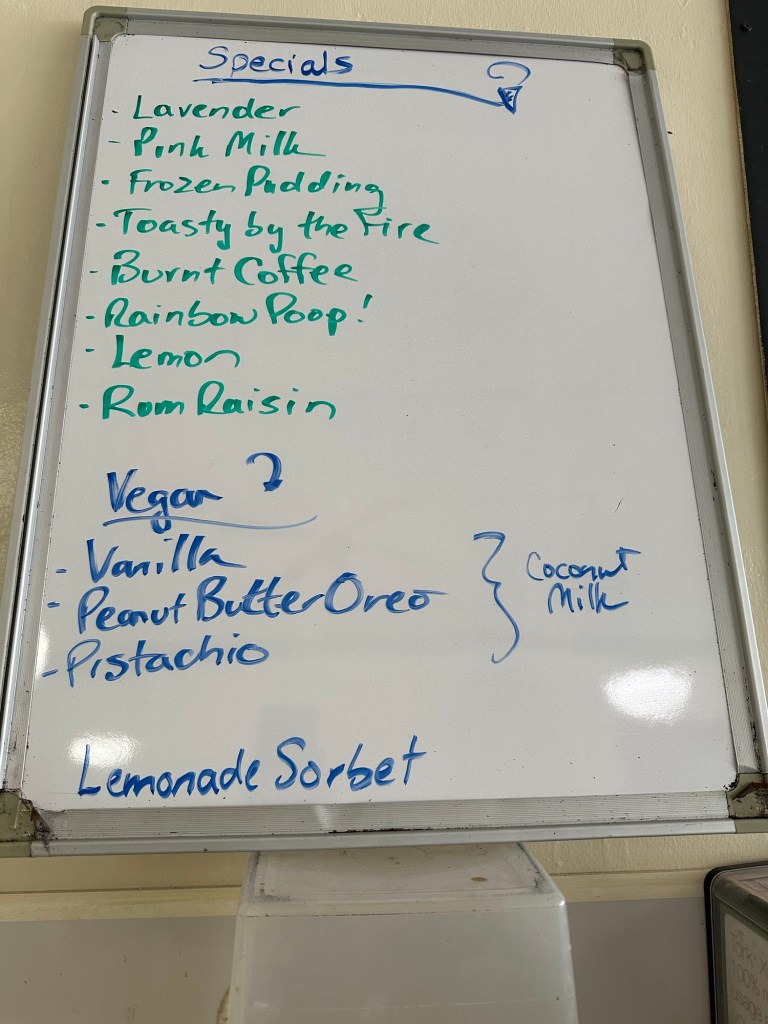 Specials
- Lavender
- Pink Milk
- Frozen Pudding
- Toasty by the Fire
- Burnt Coffee
- Rainbow Poop!
- Lemon
- Rum Raisin
Vegan
- Vanilla
- Peanut Butter Oreo
- Pistachio
} Coconut
Milk
Lemonade Sorbet